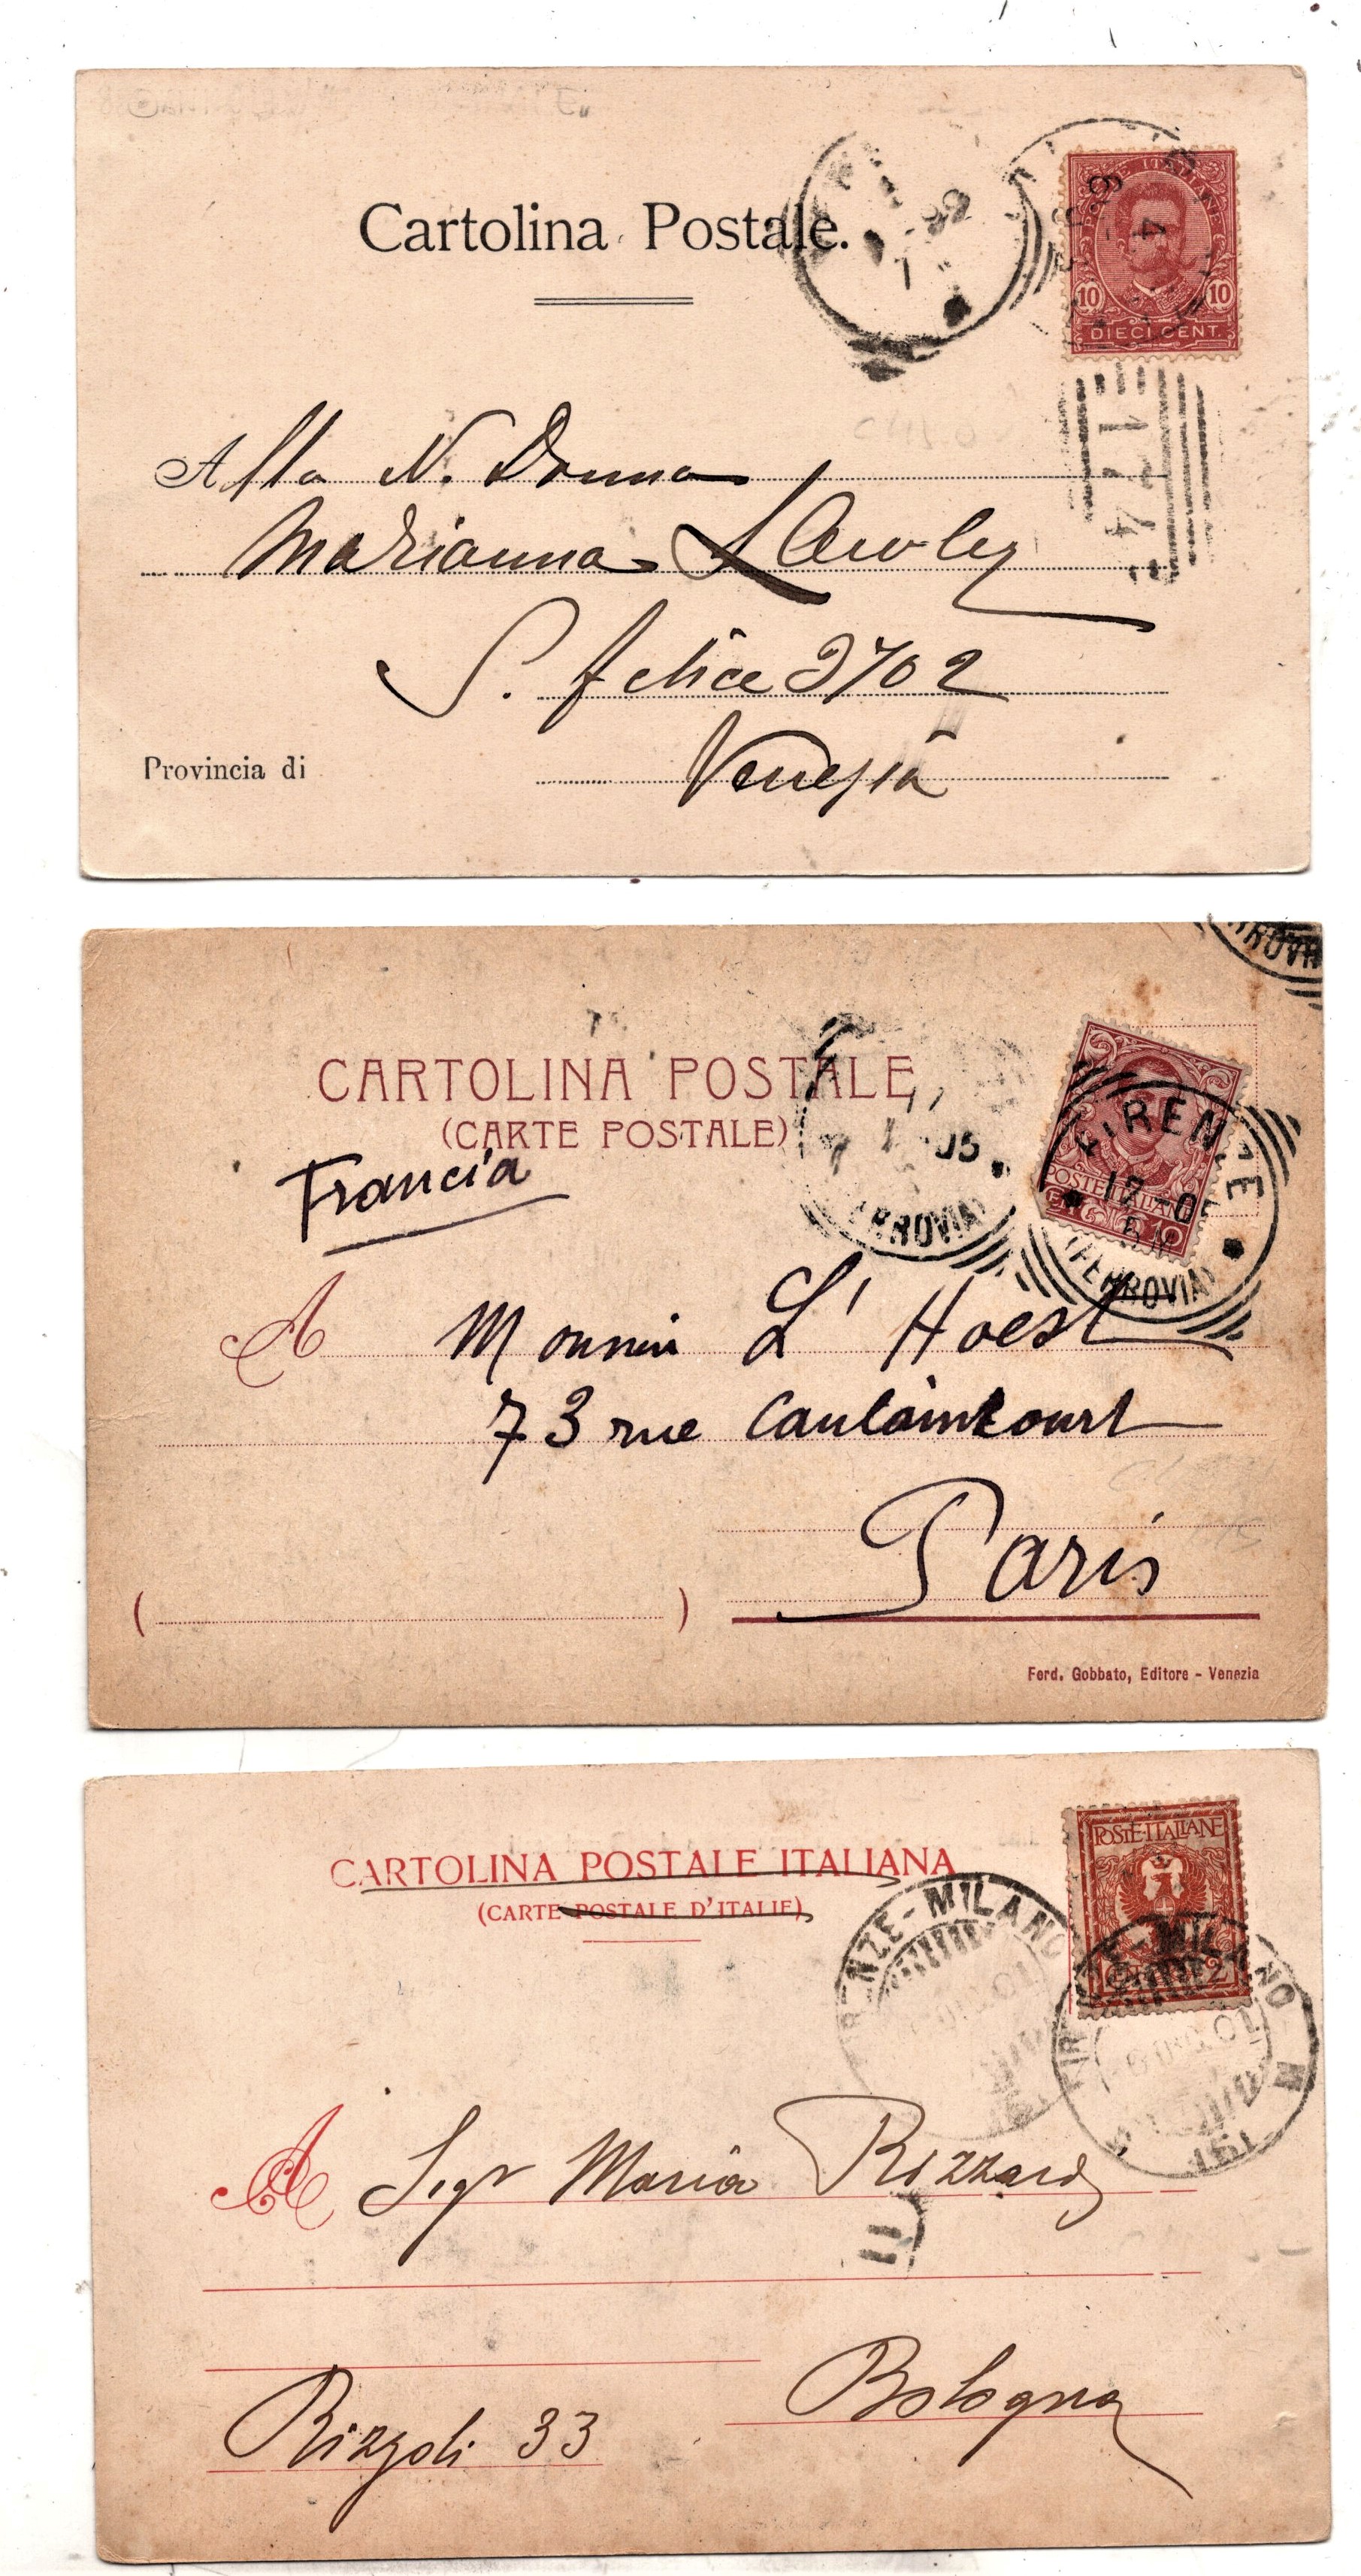 Cartolina Postale.
POSTE ITALIANE
10 10
DIECI CENT.
1774
Alla N. Donna
Marianna
S. Felice 2702
Provincia di Venezia
CARTOLINA POSTALE
(CARTE POSTALE)
Francia
FIRENZE
(FERROVIA)
POSTE ITALIANE
10
(FERROVIA)
A L' Hoest
73 rue Caulaincourt
Paris
( )
Ferd. Gobbato, Editore - Venezia
CARTOLINA POSTALE ITALIANA
(CARTE POSTALE D'ITALIE)
POSTE·ITALIANE
2
FIRENZE-MILANO
FIRENZE-MILANO
A Sigr Maria Rizzardi
Bologna
Rizzoli 33